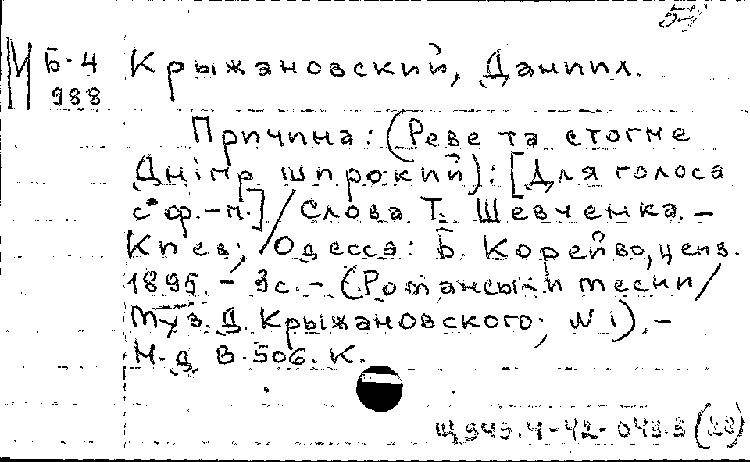 М Б-4 Крыжановский, Даниил.
988
Причина: (Реве та стогне
Дніпр широкий): [Для голоса
с ф.-п.] / Слова Т. Шевченка. -
Киев; Одесса: Б. Корейво, ценз.
1895. - 3 с. - (Романсы и песни /
Муз. Д. Крыжановского; N 1). -
Н. д. В. 506. К.
Щ 945.4-42-043.3 (28)